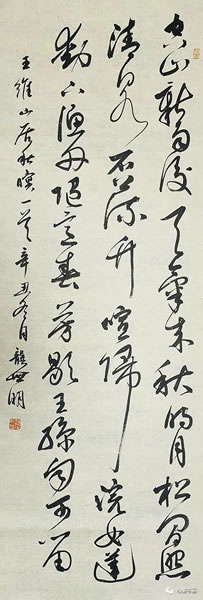 空山新雨後天氣來秋明月松間照
清泉石上流竹喧歸浣女蓮
動下漁舟隨意春芳歇王孫自可留
王維山居秋暝一首辛丑冬月